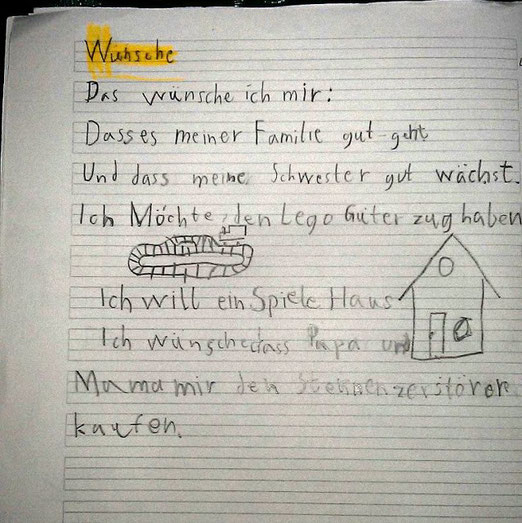 Wünsche
Das wünsche ich mir:
Dass es meiner Familie gut geht
Und dass meine Schwester gut wächst.
Ich Möchte den Lego Güter zug haben
Ich will ein Spiele Haus
Ich wünsche dass Papa und
Mama mir den Sternenzerstörer
kaufen.